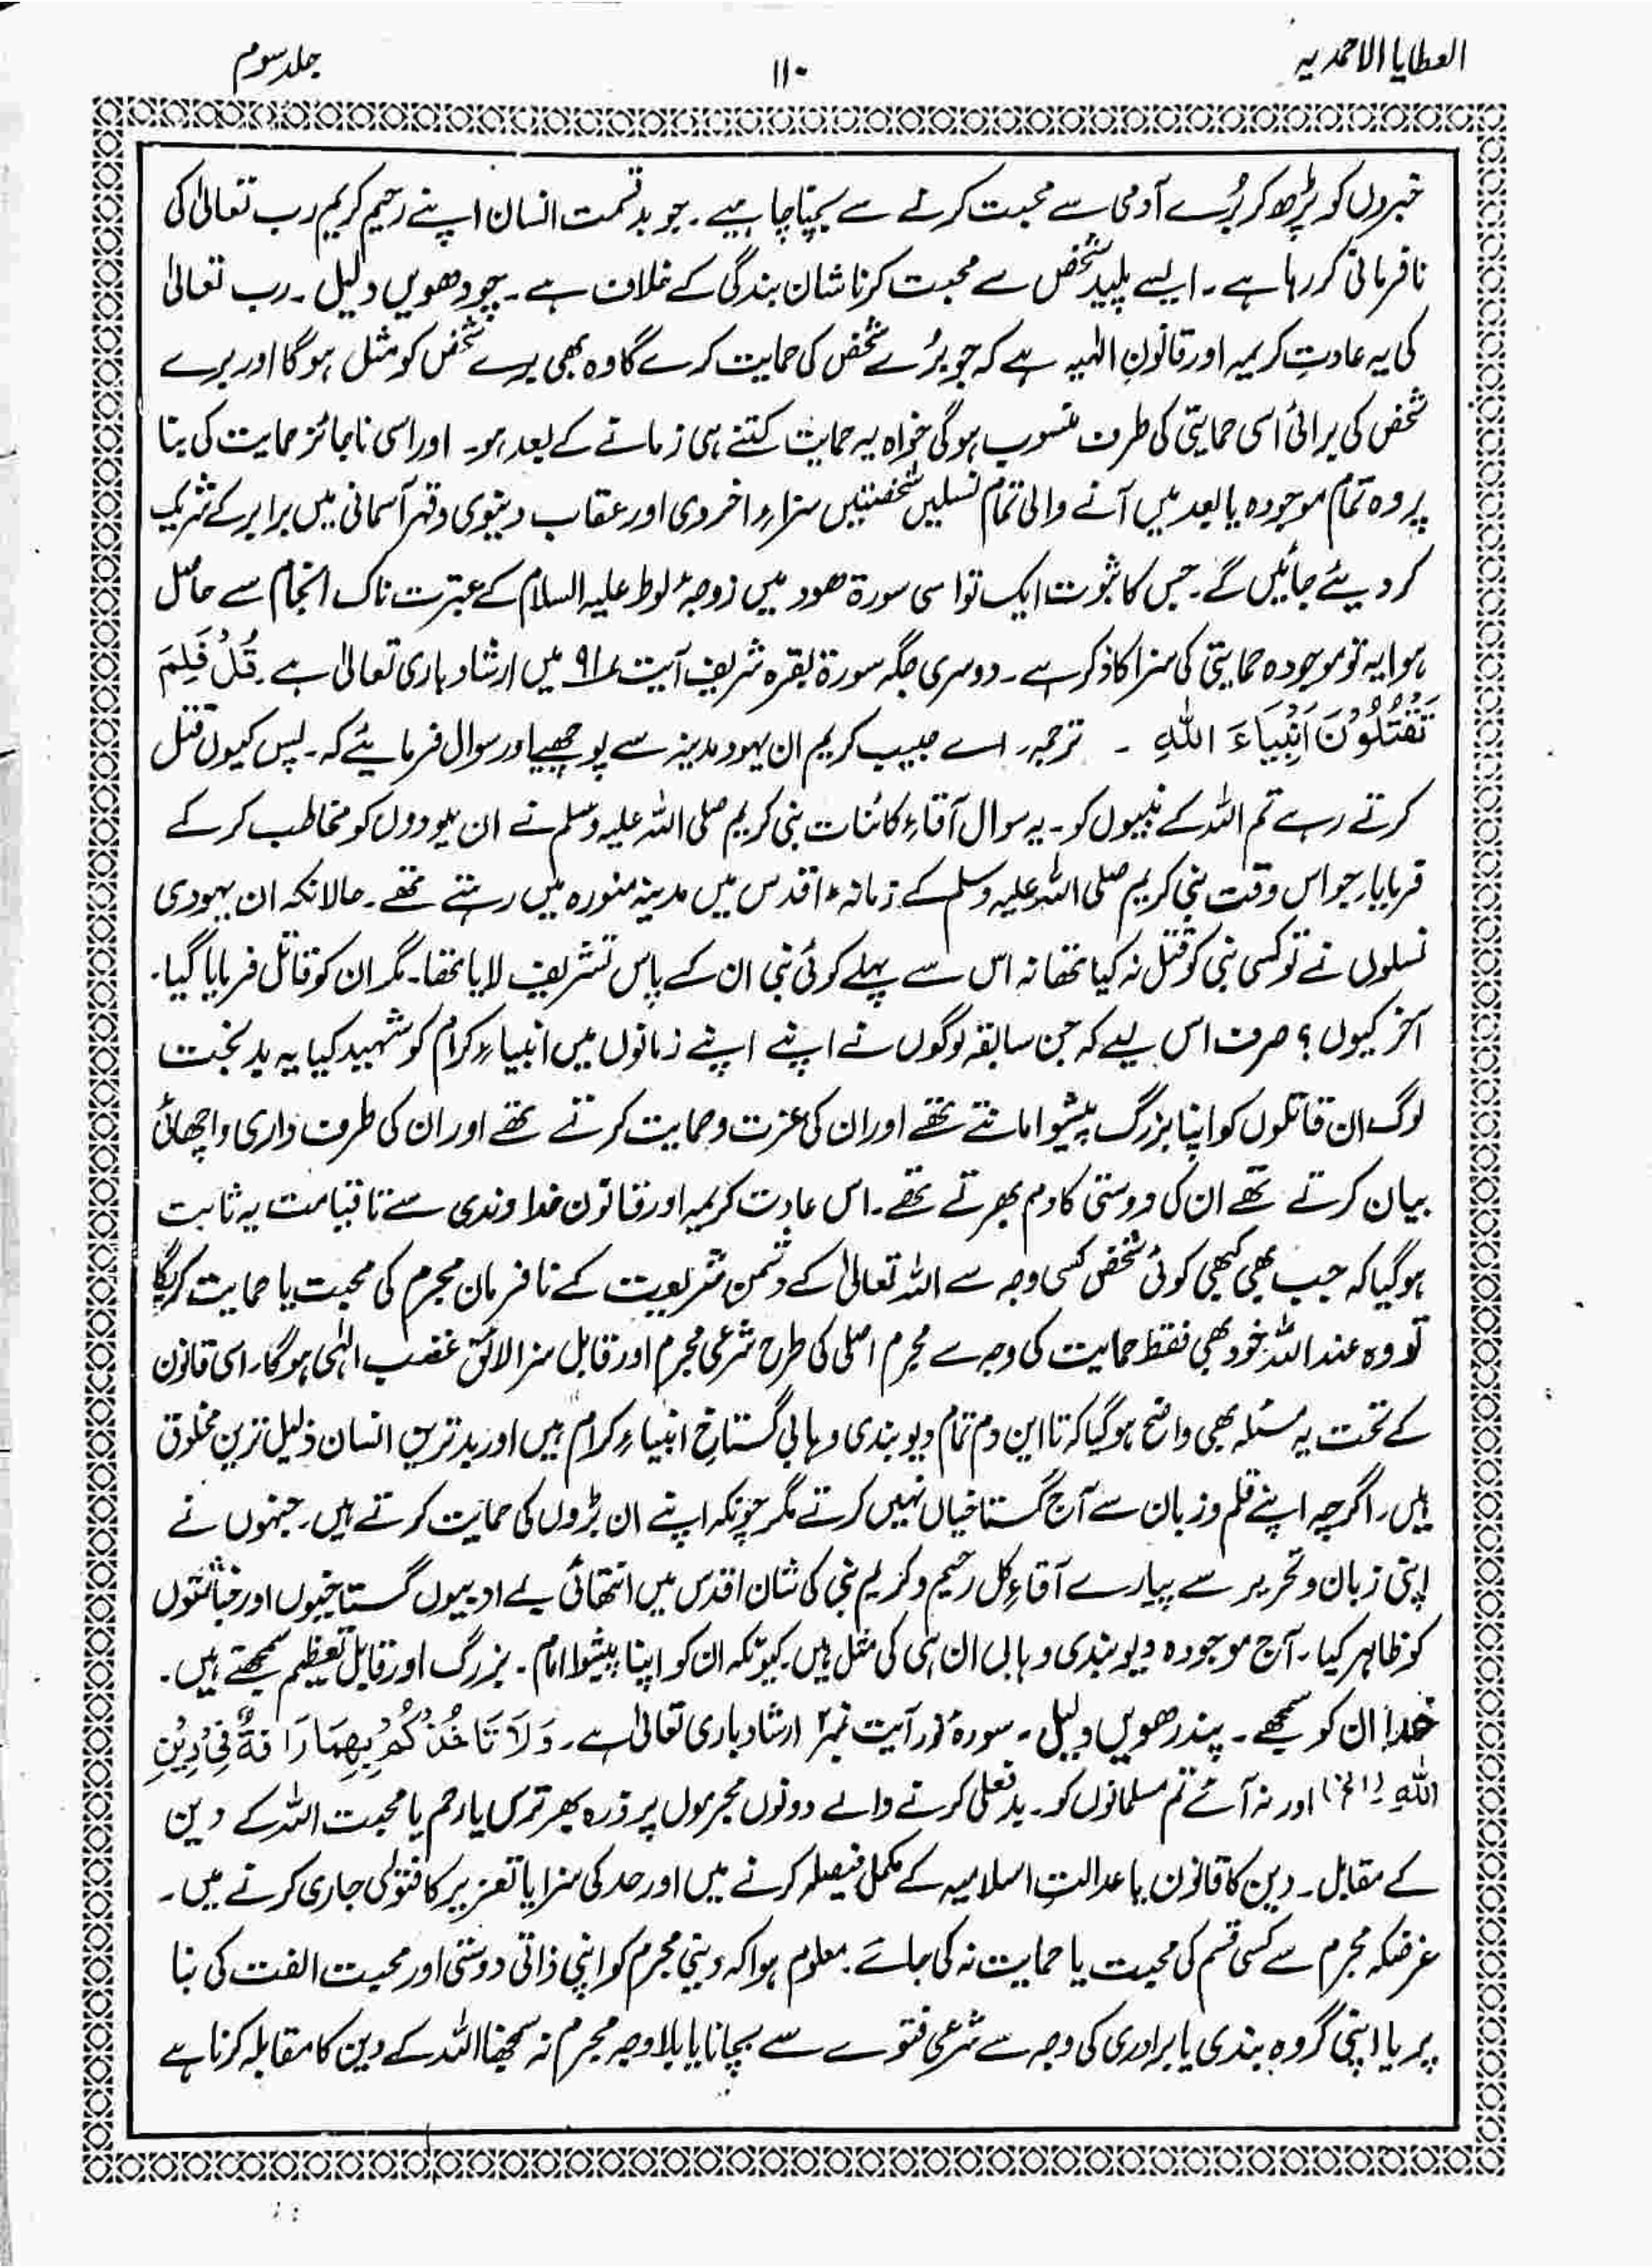 العطایا الاحمدیہ
۱۱۰
جلد سوم
خبروں کو پڑھ کر بُرے آدمی سے محبت کرنے سے بچنا چاہیے۔ جو بدقسمت انسان اپنے رحیم کریم رب تعالیٰ کی
نافرمانی کر رہا ہے۔ ایسے پلید شخص سے محبت کرنا شان بندگی کے خلاف ہے۔ چودھویں دلیل۔ رب تعالیٰ
کی یہ عادتِ کریمہ اور قانونِ الٰہیہ ہے کہ جو بُرے شخص کی حمایت کرے گا وہ بھی برے شخص کو مثل ہوگا اور برے
شخص کی برائی اسی حمایتی کی طرف منسوب ہوگی خواہ یہ حمایت کتنے ہی زمانے کے بعد ہو۔ اور اسی ناجائز حمایت کی بنا
پر وہ تمام موجودہ یا بعد میں آنے والی تمام نسلیں شخصیتیں سزاءِ اخروی اور عقاب دینوی و قہر آسمانی میں برابر کے شریک
کر دیئے جائیں گے۔ جس کا ثبوت ایک تو اسی سورۃ ھود میں زوجۂ لوط علیہ السلام کے عبرت ناک انجام سے حاصل
ہوا یہ تو موجودہ حمایتی کی سزا کا ذکر ہے۔ دوسری جگہ سورۃ بقرہ شریف آیت ۹۱ میں ارشاد باری تعالیٰ ہے۔ قُلْ فَلِمَ
تَقْتُلُوْنَ اَنْبِیَاءَ اللّٰہِ ۔ ترجمہ۔ اے حبیب کریم ان یہود مدینہ سے پوچھیے اور سوال فرمایئے کہ۔ پس کیوں قتل
کرتے رہے تم اللہ کے نبیوں کو۔ یہ سوال آقاءِ کائنات نبی کریم صلی اللہ علیہ وسلم نے ان یہودوں کو مخاطب کر کے
فرمایا۔ جو اس وقت نبی کریم صلی اللہ علیہ وسلم کے زمانہء اقدس میں مدینہ منورہ میں رہتے تھے۔ حالانکہ ان یہودی
نسلوں نے تو کسی نبی کو قتل نہ کیا تھا نہ اس سے پہلے کوئی نبی ان کے پاس تشریف لایا تھا۔ مگر ان کو قاتل فرمایا گیا۔
آخر کیوں؟ صرف اس لیے کہ جن سابقہ لوگوں نے اپنے اپنے زمانوں میں انبیاءِ کرام کو شہید کیا یہ بدبخت
لوگ ان قاتلوں کو اپنا بزرگ پیشوا مانتے تھے اور ان کی عزت و حمایت کرتے تھے اور ان کی طرف داری و اچھائی
بیان کرتے تھے ان کی دوستی کا دم بھرتے تھے۔ اس عادت کریمہ اور قانون خداوندی سے تا قیامت یہ ثابت
ہوگیا کہ جب بھی کبھی کوئی شخص کسی وجہ سے اللہ تعالیٰ کے دشمن شریعت کے نافرمان مجرم کی محبت یا حمایت کریگا
تو وہ عند اللہ خود بھی فقط حمایت کی وجہ سے مجرم اصلی کی طرح شرعی مجرم اور قابل سزا لائق غضب الٰہی ہوگا۔ اسی قانون
کے تحت یہ مسئلہ بھی واضح ہوگیا کہ تا این دم تمام دیوبندی وہابی گستاخِ انبیاءِ کرام ہیں اور بدترین انسان ذلیل ترین مخلوق
ہیں۔ اگرچہ اپنے قلم و زبان سے آج گستاخیاں نہیں کرتے مگر چونکہ اپنے ان بڑوں کی حمایت کرتے ہیں۔ جنہوں نے
اپنی زبان و تحریر سے پیارے آقاءِ کل رحیم و کریم نبی کی شان اقدس میں انتھائی بے ادبیوں گستاخیوں اور خباثتوں
کو ظاہر کیا۔ آج موجودہ دیوبندی وہابی ان ہی کی مثل ہیں۔ کیونکہ ان کو اپنا پیشوا امام۔ بزرگ اور قابل تعظیم سمجھتے ہیں۔
خدا ان کو سمجھے۔ پندرھویں دلیل۔ سورۂ نور آیت نمبر ۲ ارشاد باری تعالیٰ ہے۔ وَلَا تَاْخُذْکُمْ بِھِمَا رَاْفَۃٌ فِیْ دِیْنِ
اللّٰہِ (الخ) اور نہ آئے تم مسلمانوں کو۔ بدفعلی کرنے والے دونوں مجرموں پر ذرہ بھر ترس یا رحم یا محبت اللہ کے دین
کے مقابل۔ دین کا قانون یا عدالتِ اسلامیہ کے مکمل فیصلہ کرنے میں اور حد کی سزا یا تعزیر کا فتویٰ جاری کرنے میں۔
غرضکہ مجرم سے کسی قسم کی محبت یا حمایت نہ کی جائے۔ معلوم ہوا کہ دینی مجرم کو اپنی ذاتی دوستی اور محبت الفت کی بنا
پر یا اپنی گروہ بندی یا برادری کی وجہ سے شرعی فتوے سے بچانا یا بلاوجہ مجرم نہ سمجھنا اللہ کے دین کا مقابلہ کرنا ہے